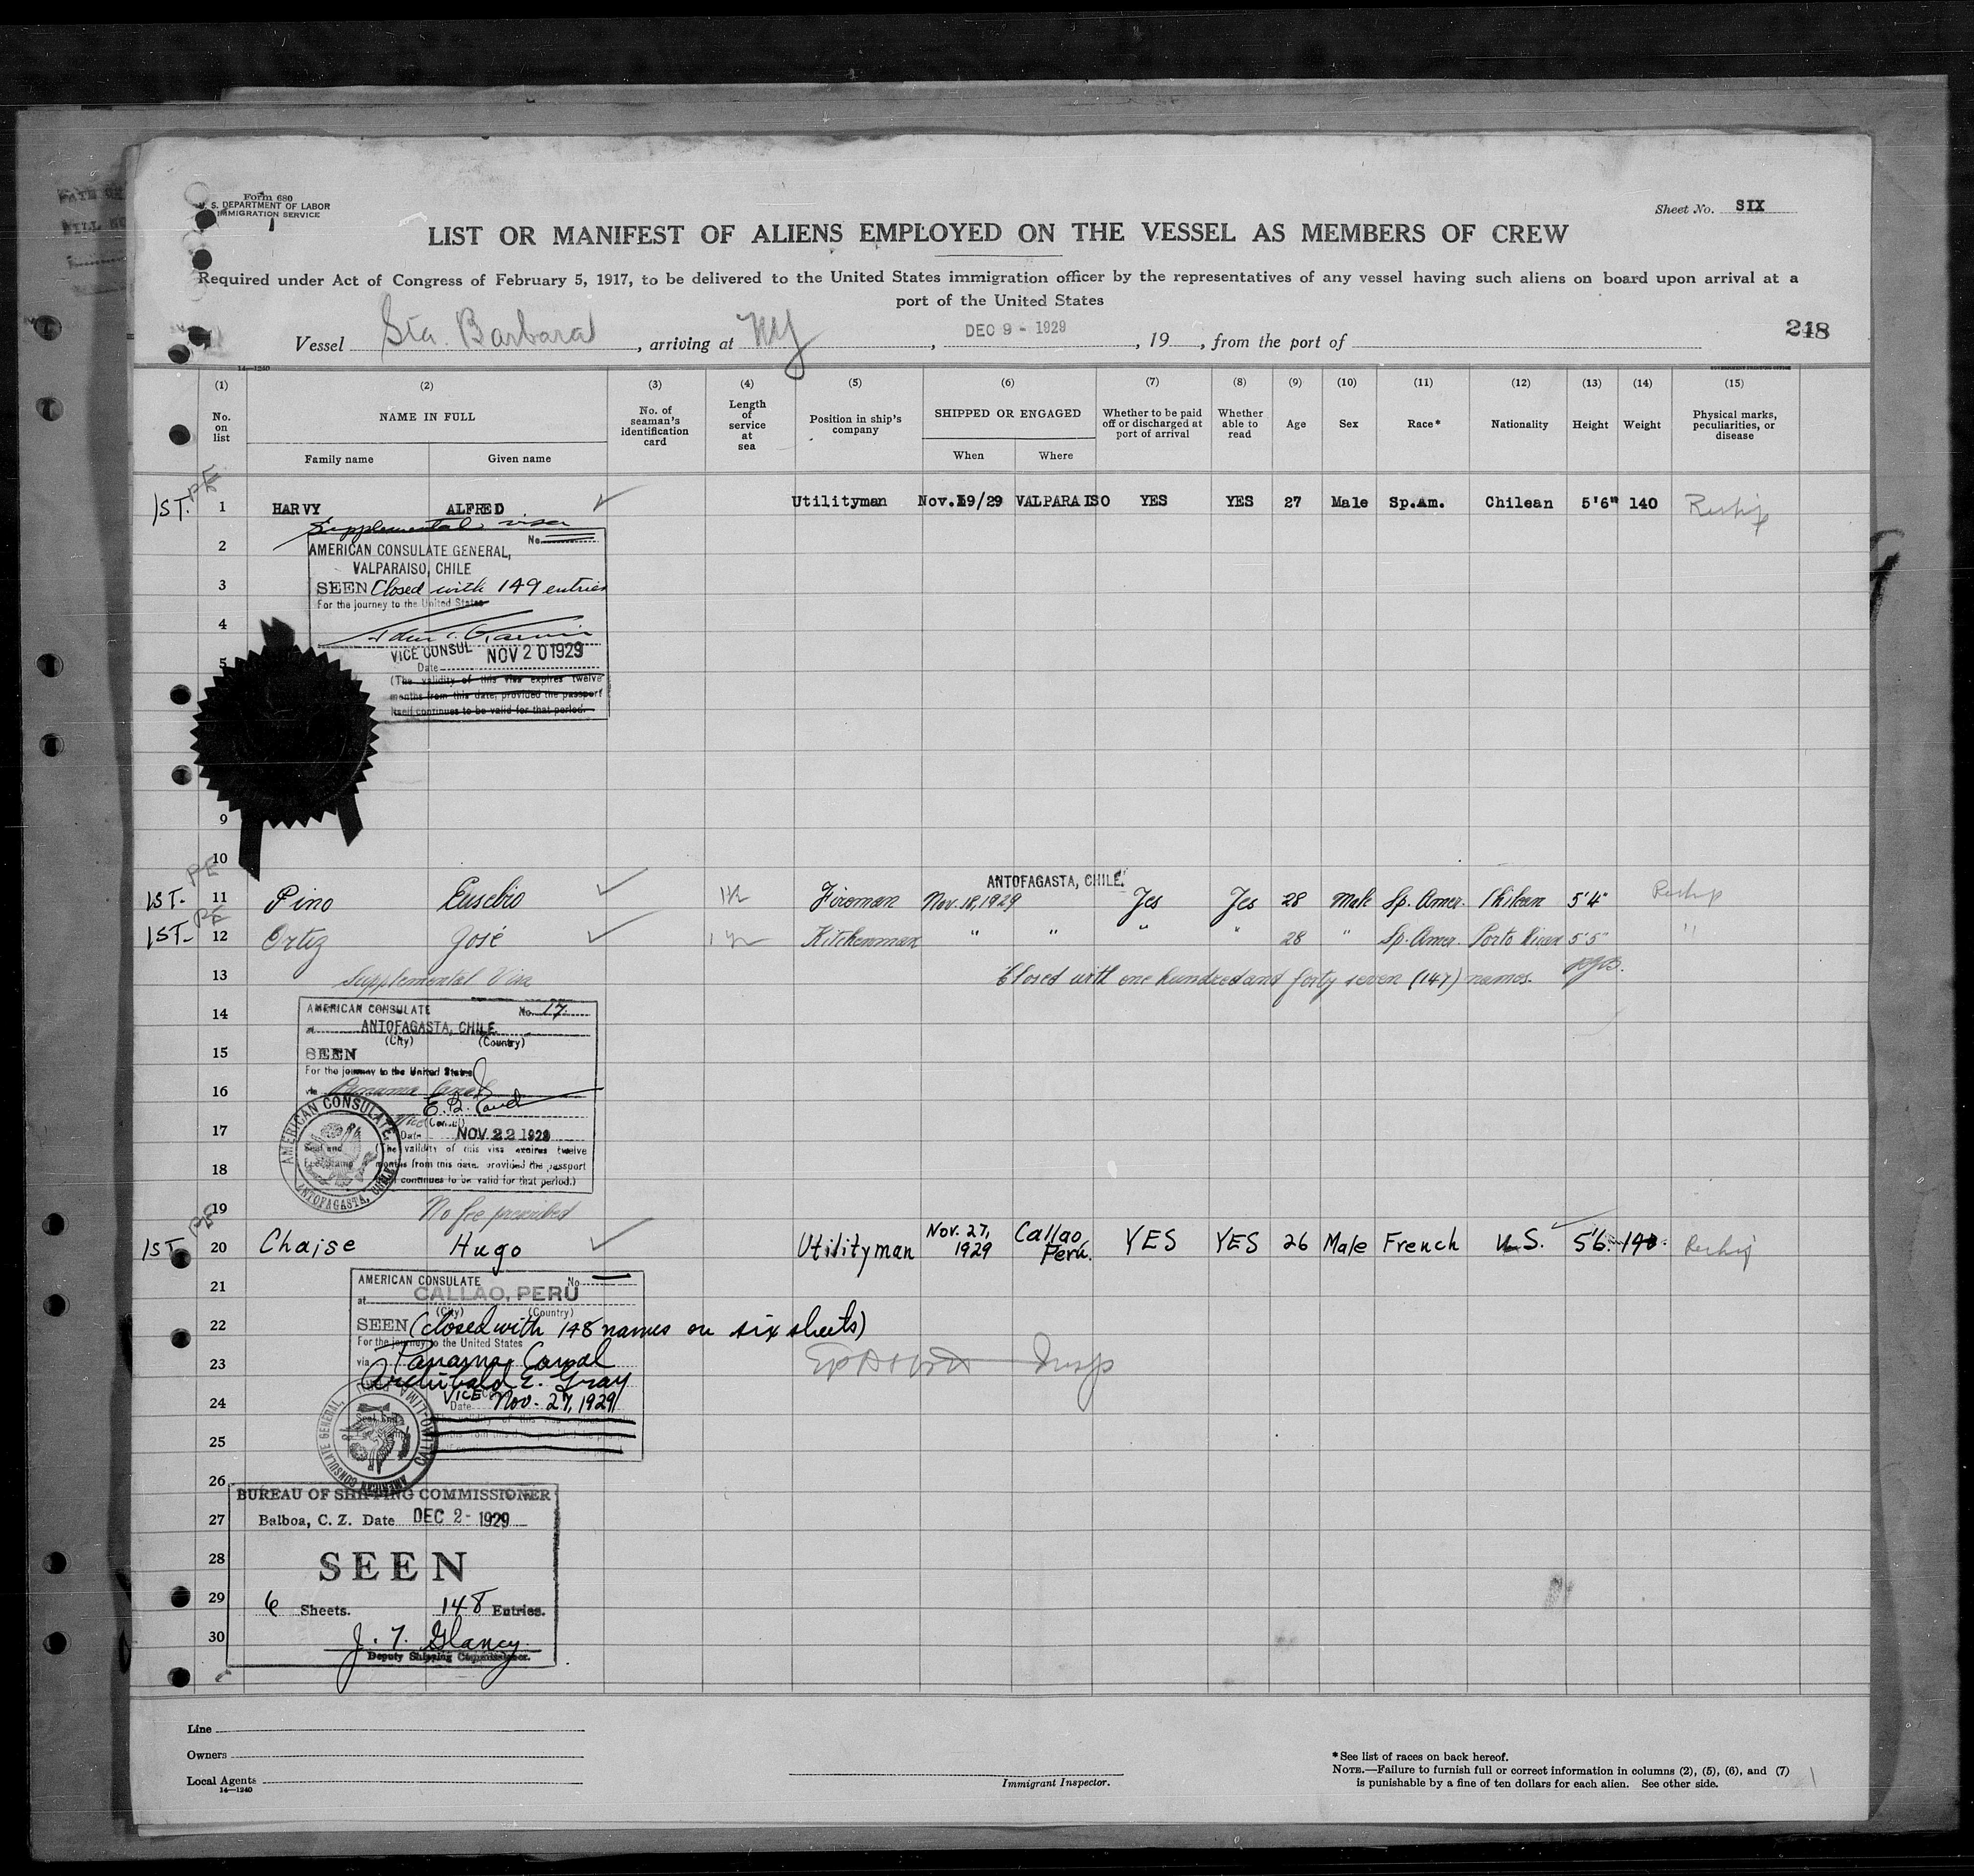 Form 680
U. S. DEPARTMENT OF LABOR
IMMIGRATION SERVICE
Sheet No. SIX
LIST OR MANIFEST OF ALIENS EMPLOYED ON THE VESSEL AS MEMBERS OF CREW
Required under Act of Congress of February 5, 1917, to be delivered to the United States immigration officer by the representatives of any vessel having such aliens on board upon arrival at a
port of the United States
Vessel Sta. Barbara, arriving at NY, DEC 9 - 1929, 19, from the port of
248
14—1240
(1) (2) (3) (4) (5) (6) (7) (8) (9) (10) (11) (12) (13) (14) (15)
No. on list
NAME IN FULL
Family name Given name
No. of seaman's identification card
Length of service at sea
Position in ship's company
SHIPPED OR ENGAGED
When Where
Whether to be paid off or discharged at port of arrival
Whether able to read
Age
Sex
Race*
Nationality
Height
Weight
Physical marks, peculiarities, or disease
PE
1ST. 1 HARVY ALFRED Utilityman Nov.19/29 VALPARAISO YES YES 27 Male Sp.Am. Chilean 5'6" 140 Reship
Supplemental visa
2 No.
AMERICAN CONSULATE GENERAL,
VALPARAISO, CHILE
3 SEEN Closed with 149 entries
For the journey to the United States
4
5 VICE CONSUL NOV 20 1929
Date
(The validity of this visa expires twelve
months from this date, provided the passport
itself continues to be valid for that period.
9
10
PE
ANTOFAGASTA, CHILE.
1ST. 11 Pino Eusebio 1½ Fireman Nov. 18, 1929 Yes Yes 28 Male Sp. Amer. Chilean 5'4" Reship
PE
1ST. 12 Ortiz José Kitchenman " " " " 28 " Sp. Amer. Porto Rican 5'5" "
13 Supplemental Visa Closed with one hundred and forty seven (147) names.
14 AMERICAN CONSULATE No. 17
at ANTOFAGASTA, CHILE.
(City) (Country)
15 SEEN
For the journey to the United States
16 via Panama Canal
AMERICAN CONSULATE
17 Vice (Consul)
Date NOV 22 1929
Seal and Fee Stamp
(The validity of this visa expires twelve
18 months from this date, provided the passport
continues to be valid for that period.)
ANTOFAGASTA, CHILE
19 No fee prescribed
PE
1ST 20 Chaise Hugo Utilityman Nov. 27, 1929 Callao, Peru. YES YES 26 Male French U.S. 5'6" 140 Reship
21 AMERICAN CONSULATE No.
at CALLAO, PERU
(City) (Country)
22 SEEN (closed with 148 names on six sheets)
For the journey to the United States
23 via Panama Canal
Archibald E. Gray
VICE
24 Date Nov. 27, 1929
25
AMERICAN CONSULATE GENERAL, CALLAO-LIMA, PERU
26
BUREAU OF SHIPPING COMMISSIONER
27 Balboa, C. Z. Date DEC 2- 1929
28 SEEN
29 6 Sheets. 148 Entries.
30 J. T. Glancy.
Deputy Shipping Commissioner.
Line
Owners
Local Agents
14—1240
Immigrant Inspector.
*See list of races on back hereof.
NOTE.—Failure to furnish full or correct information in columns (2), (5), (6), and (7)
is punishable by a fine of ten dollars for each alien. See other side.